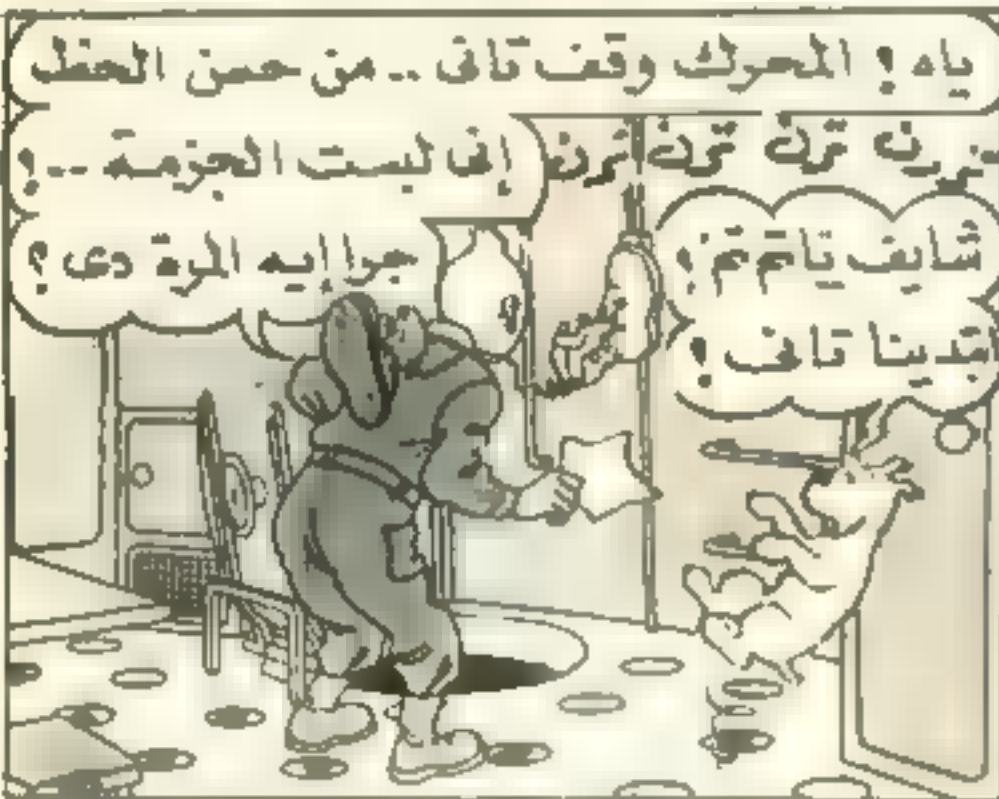 ياه ! المحرك وقف تانى .. من حسن الحظ
إنى لبست الجزمة .. !
جرا إيه المرة دى ؟
ترن ترن ترن ترن
شايف يا تم تم !
تانى !